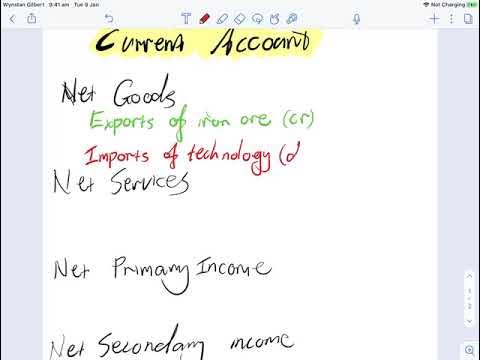 Wynstan Gilbert 9:41 am Tue 9 Jan
Not Charging
Current Account
Net Goods
Exports of iron ore (cr)
Imports of technology (d
Net Services
Net Primary Income
Net Secondary income